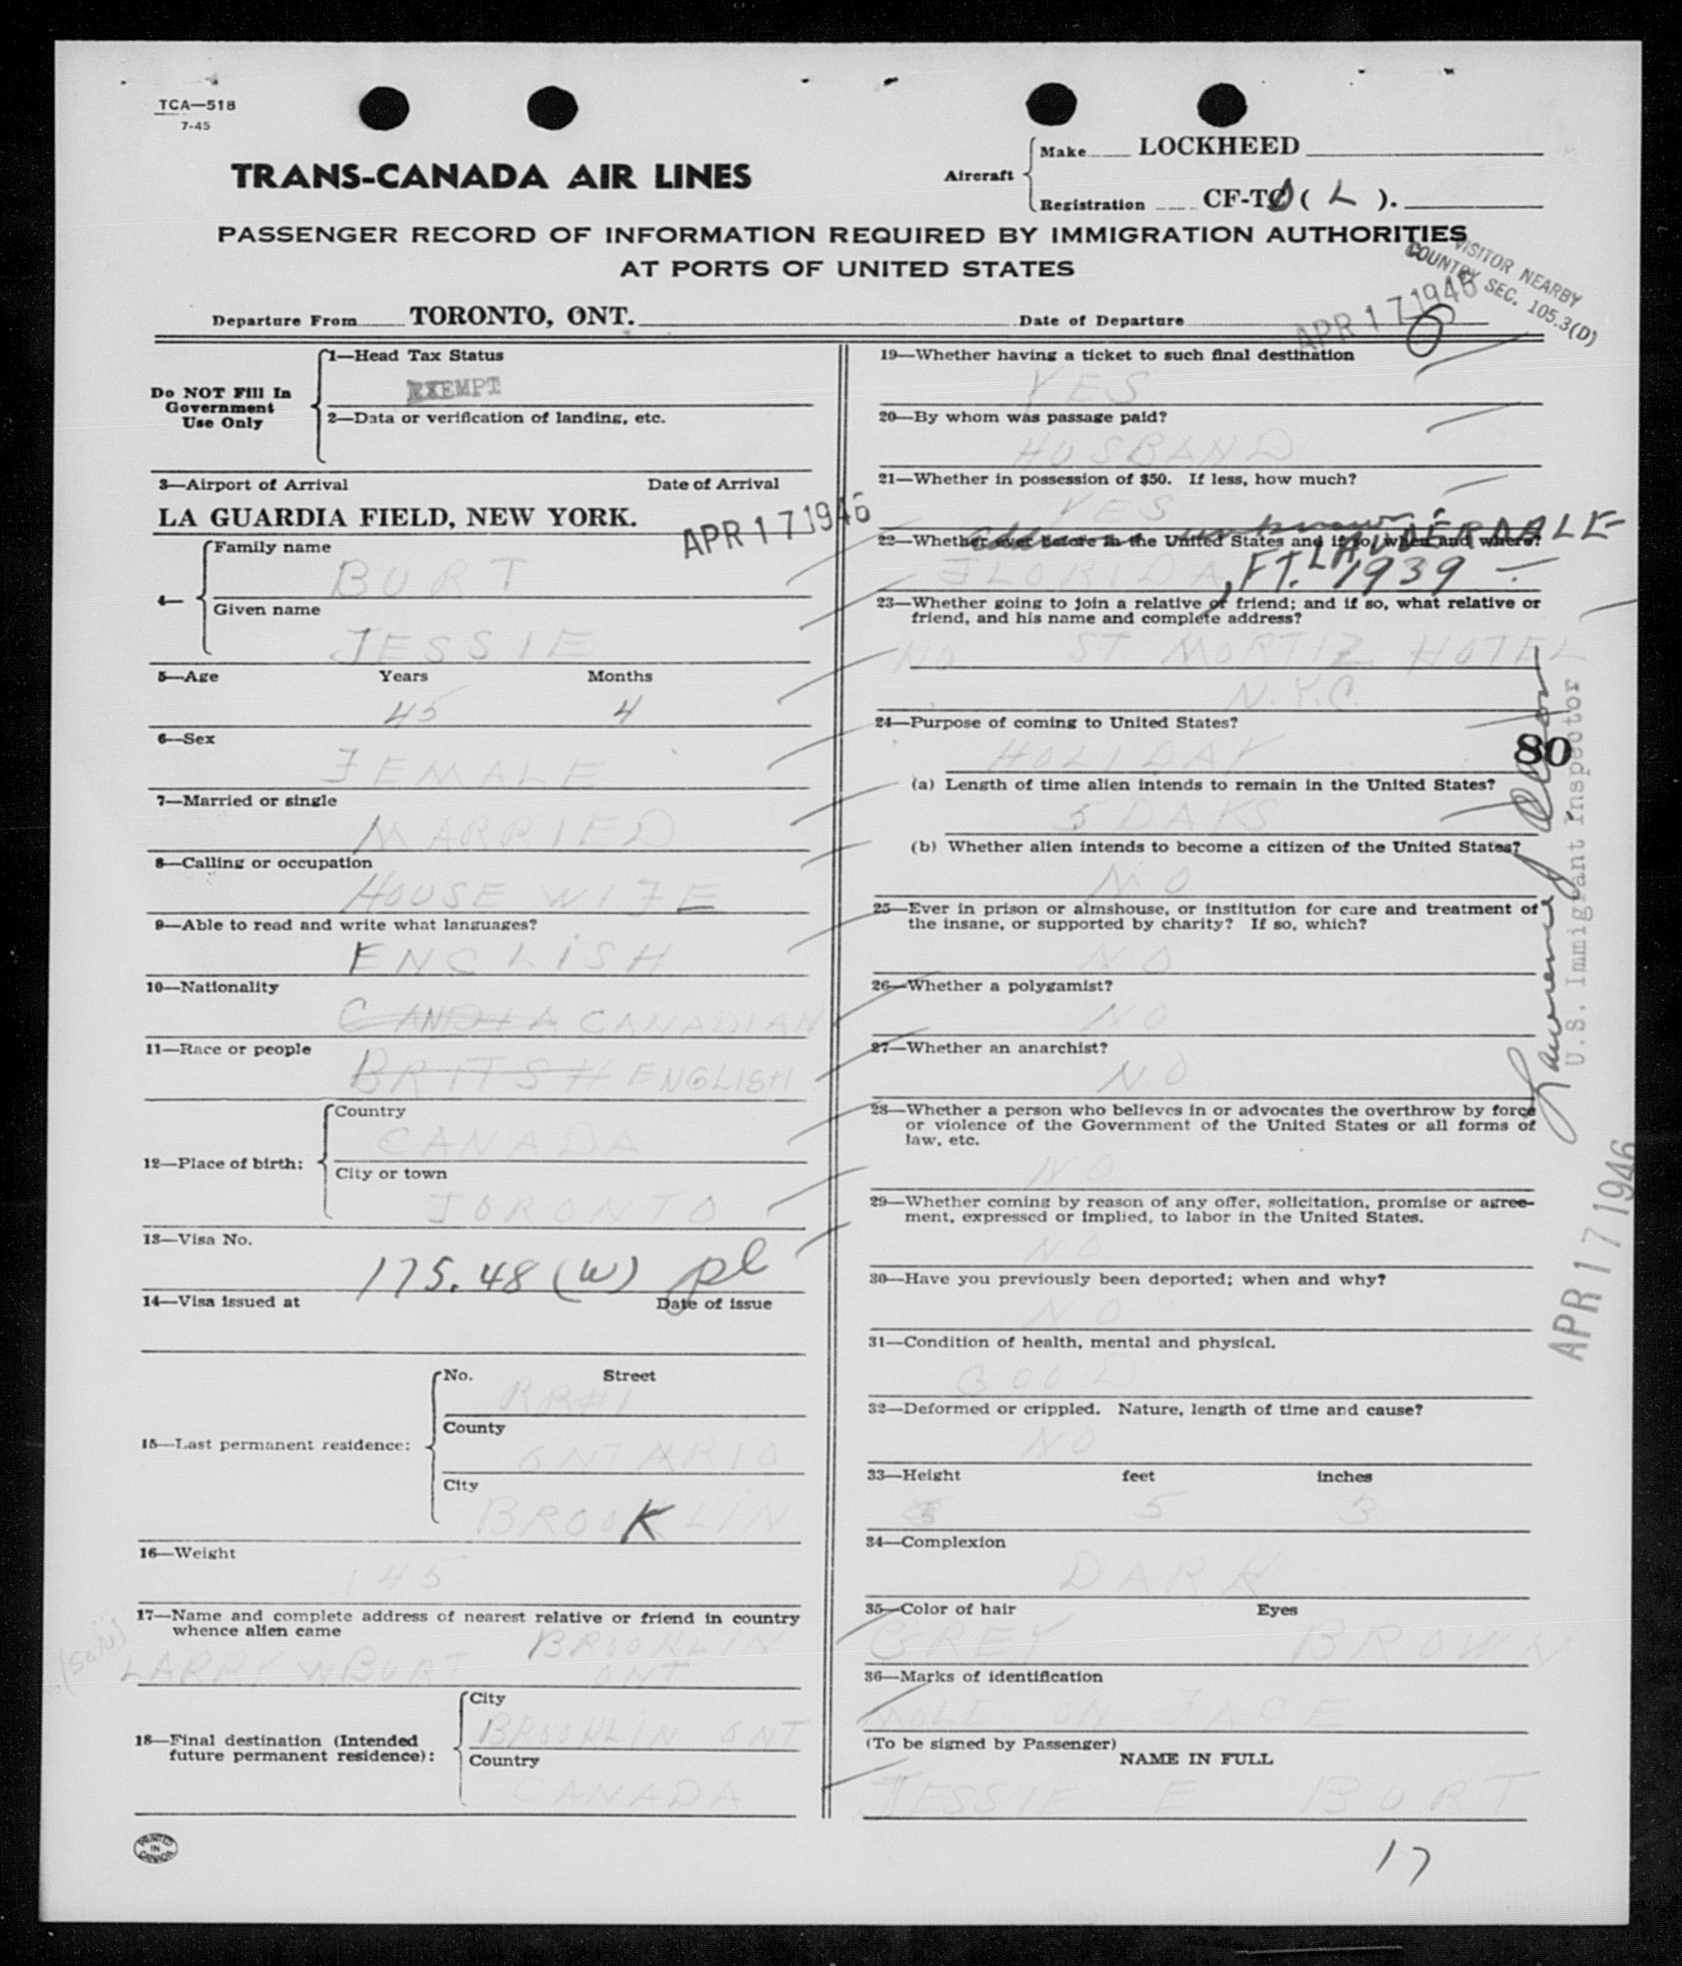 TCA—518
7-45
TRANS-CANADA AIR LINES
Aircraft
Make LOCKHEED
Registration CF-TC ( L ).
PASSENGER RECORD OF INFORMATION REQUIRED BY IMMIGRATION AUTHORITIES
AT PORTS OF UNITED STATES
VISITOR NEARBY
COUNTRY SEC. 105.3(D)
Departure From TORONTO, ONT.
Date of Departure APR 17 1946
Do NOT Fill In
Government
Use Only
1—Head Tax Status
EXEMPT
2—Data or verification of landing, etc.
3—Airport of Arrival Date of Arrival
LA GUARDIA FIELD, NEW YORK. APR 17 1946
4—
Family name
BURT
Given name
JESSIE
5—Age Years Months
45 4
6—Sex
FEMALE
7—Married or single
MARRIED
8—Calling or occupation
HOUSE WIFE
9—Able to read and write what languages?
ENGLISH
10—Nationality
CANDIA CANADIAN
11—Race or people
BRITSH ENGLISH
12—Place of birth:
Country
CANADA
City or town
TORONTO
13—Visa No.
175.48 (W) pl
14—Visa issued at Date of issue
15—Last permanent residence:
No. Street
RR#1
County
ONTARIO
City
BROOKLIN
16—Weight
145
17—Name and complete address of nearest relative or friend in country
whence alien came
BROOKLIN
(son) LARRY W BURT ONT
18—Final destination (Intended
future permanent residence):
City
BROOKLIN ONT
Country
CANADA
PRINTED
IN
CANADA
19—Whether having a ticket to such final destination
YES
20—By whom was passage paid?
HUSBAND
21—Whether in possession of $50. If less, how much?
YES
22—Whether ever before in the United States and if so, when and where?
FLORIDA, FT. LAUDERDALE
1939
23—Whether going to join a relative or friend; and if so, what relative or
friend, and his name and complete address?
NO ST MORTIZ HOTEL
N.Y.C.
24—Purpose of coming to United States?
HOLIDAY
80
(a) Length of time alien intends to remain in the United States?
5 DAKS
(b) Whether alien intends to become a citizen of the United States?
NO
25—Ever in prison or almshouse, or institution for care and treatment of
the insane, or supported by charity? If so, which?
NO
26—Whether a polygamist?
NO
27—Whether an anarchist?
NO
28—Whether a person who believes in or advocates the overthrow by force
or violence of the Government of the United States or all forms of
law, etc.
NO
29—Whether coming by reason of any offer, solicitation, promise or agree-
ment, expressed or implied, to labor in the United States.
NO
30—Have you previously been deported; when and why?
NO
31—Condition of health, mental and physical.
GOOD
32—Deformed or crippled. Nature, length of time and cause?
NO
33—Height feet inches
5 3
34—Complexion
DARK
35—Color of hair Eyes
GREY BROWN
36—Marks of identification
MOLE ON FACE
(To be signed by Passenger)
NAME IN FULL
JESSIE E BURT
17
Lawrence J
U.S. Immigrant Inspector
APR 17 1946